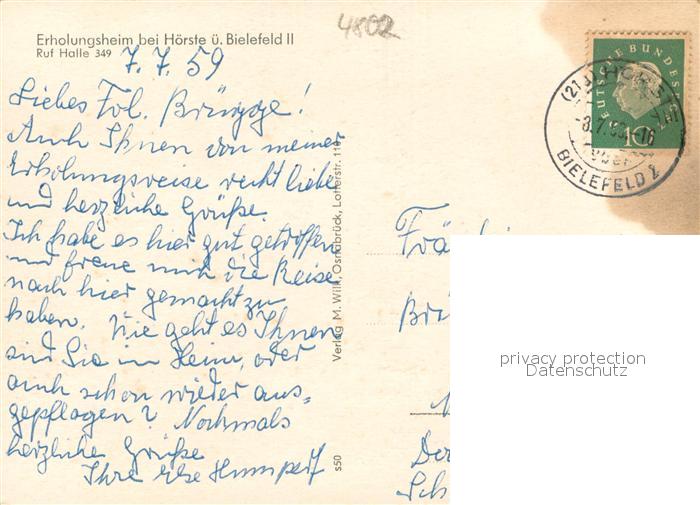 4802
Erholungsheim bei Hörste ü. Bielefeld II
Ruf Halle 349
7. 7. 59
Liebes Frl. Brügge!
Auch Ihnen von meiner
Erholungsreise recht liebe
und herzliche Grüße.
Ich habe es hier gut getroffen
und freue mich die Reise
nach hier gemacht zu
haben. Wie geht es Ihnen
sind Sie im Heim, oder
auch schon wieder aus=
geflogen? Nochmals
herzliche Grüße
Ihre Else
Verlag M. Wilk, Osnabrück, Lotterstr.
s50
DEUTSCHE BUNDES
10
(21a) HÖRSTE
8.7.59.-16
über
BIELEFELD 2
Frä
Brü
privacy protection
Datenschutz